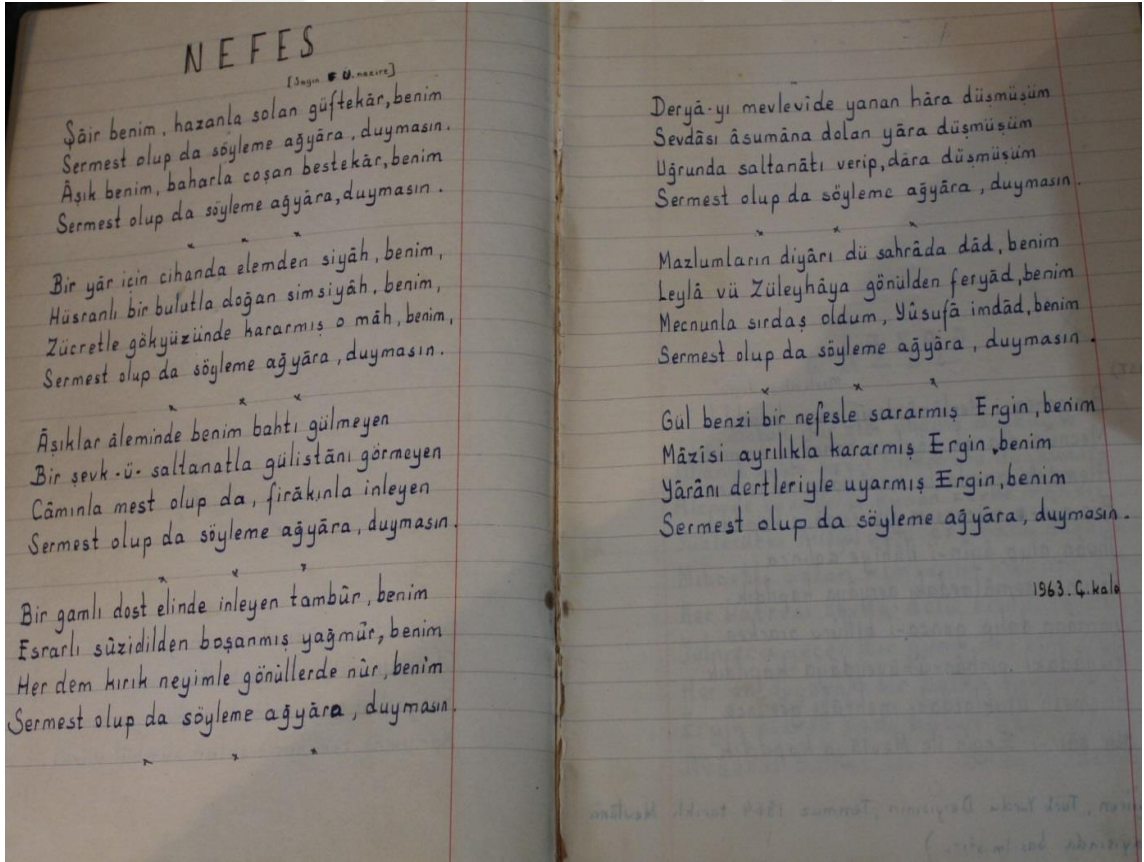 NEFES
[Sayın Ü. nazire]
Şâir benim, hazanla solan güftekâr, benim
Sermest olup da söyleme ağyâra, duymasın.
Âşık benim, baharla coşan bestekâr, benim
Sermest olup da söyleme ağyâra, duymasın.
x x x
Bir yâr için cihanda elemden siyâh, benim,
Hüsranlı bir bulutla doğan simsiyâh, benim,
Zücretle gökyüzünde kararmış o mâh, benim,
Sermest olup da söyleme ağyâra, duymasın.
x x x
Âşıklar âleminde benim bahtı gülmeyen
Bir şevk-ü-saltanatla gülistânı görmeyen
Câmınla mest olup da, firâkınla inleyen
Sermest olup da söyleme ağyâra, duymasın.
x x x
Bir gamlı dost elinde inleyen tambûr, benim
Esrarlı sûzidilden boşanmış yağmûr, benim
Her dem kırık neyimle gönüllerde nûr, benim
Sermest olup da söyleme ağyâra, duymasın.
x x x
Deryâ-yı mevlevide yanan hâra düşmüşüm
Sevdâsı âsumâna dolan yâra düşmüşüm
Uğrunda saltanâtı verip, dâra düşmüşüm
Sermest olup da söyleme ağyâra, duymasın.
x x x
Mazlumların diyârı dü sahrâda dâd, benim
Leylâ vü Züleyhâya gönülden feryâd, benim
Mecnunla sırdaş oldum, Yûsufâ imdâd, benim
Sermest olup da söyleme ağyâra, duymasın.
x x x
Gül benzi bir nefesle sararmış Ergin, benim
Mâzîsi ayrılıkla kararmış Ergin, benim
Yârânı dertleriyle uyarmış Ergin, benim
Sermest olup da söyleme ağyâra, duymasın.
1963. Ç.kale